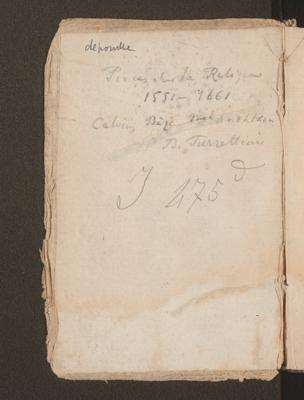 depouillé
Pièces sur la Religion
1551-1661
Calvin Bèze Melanchthon
B. Turrettini
J 475 d